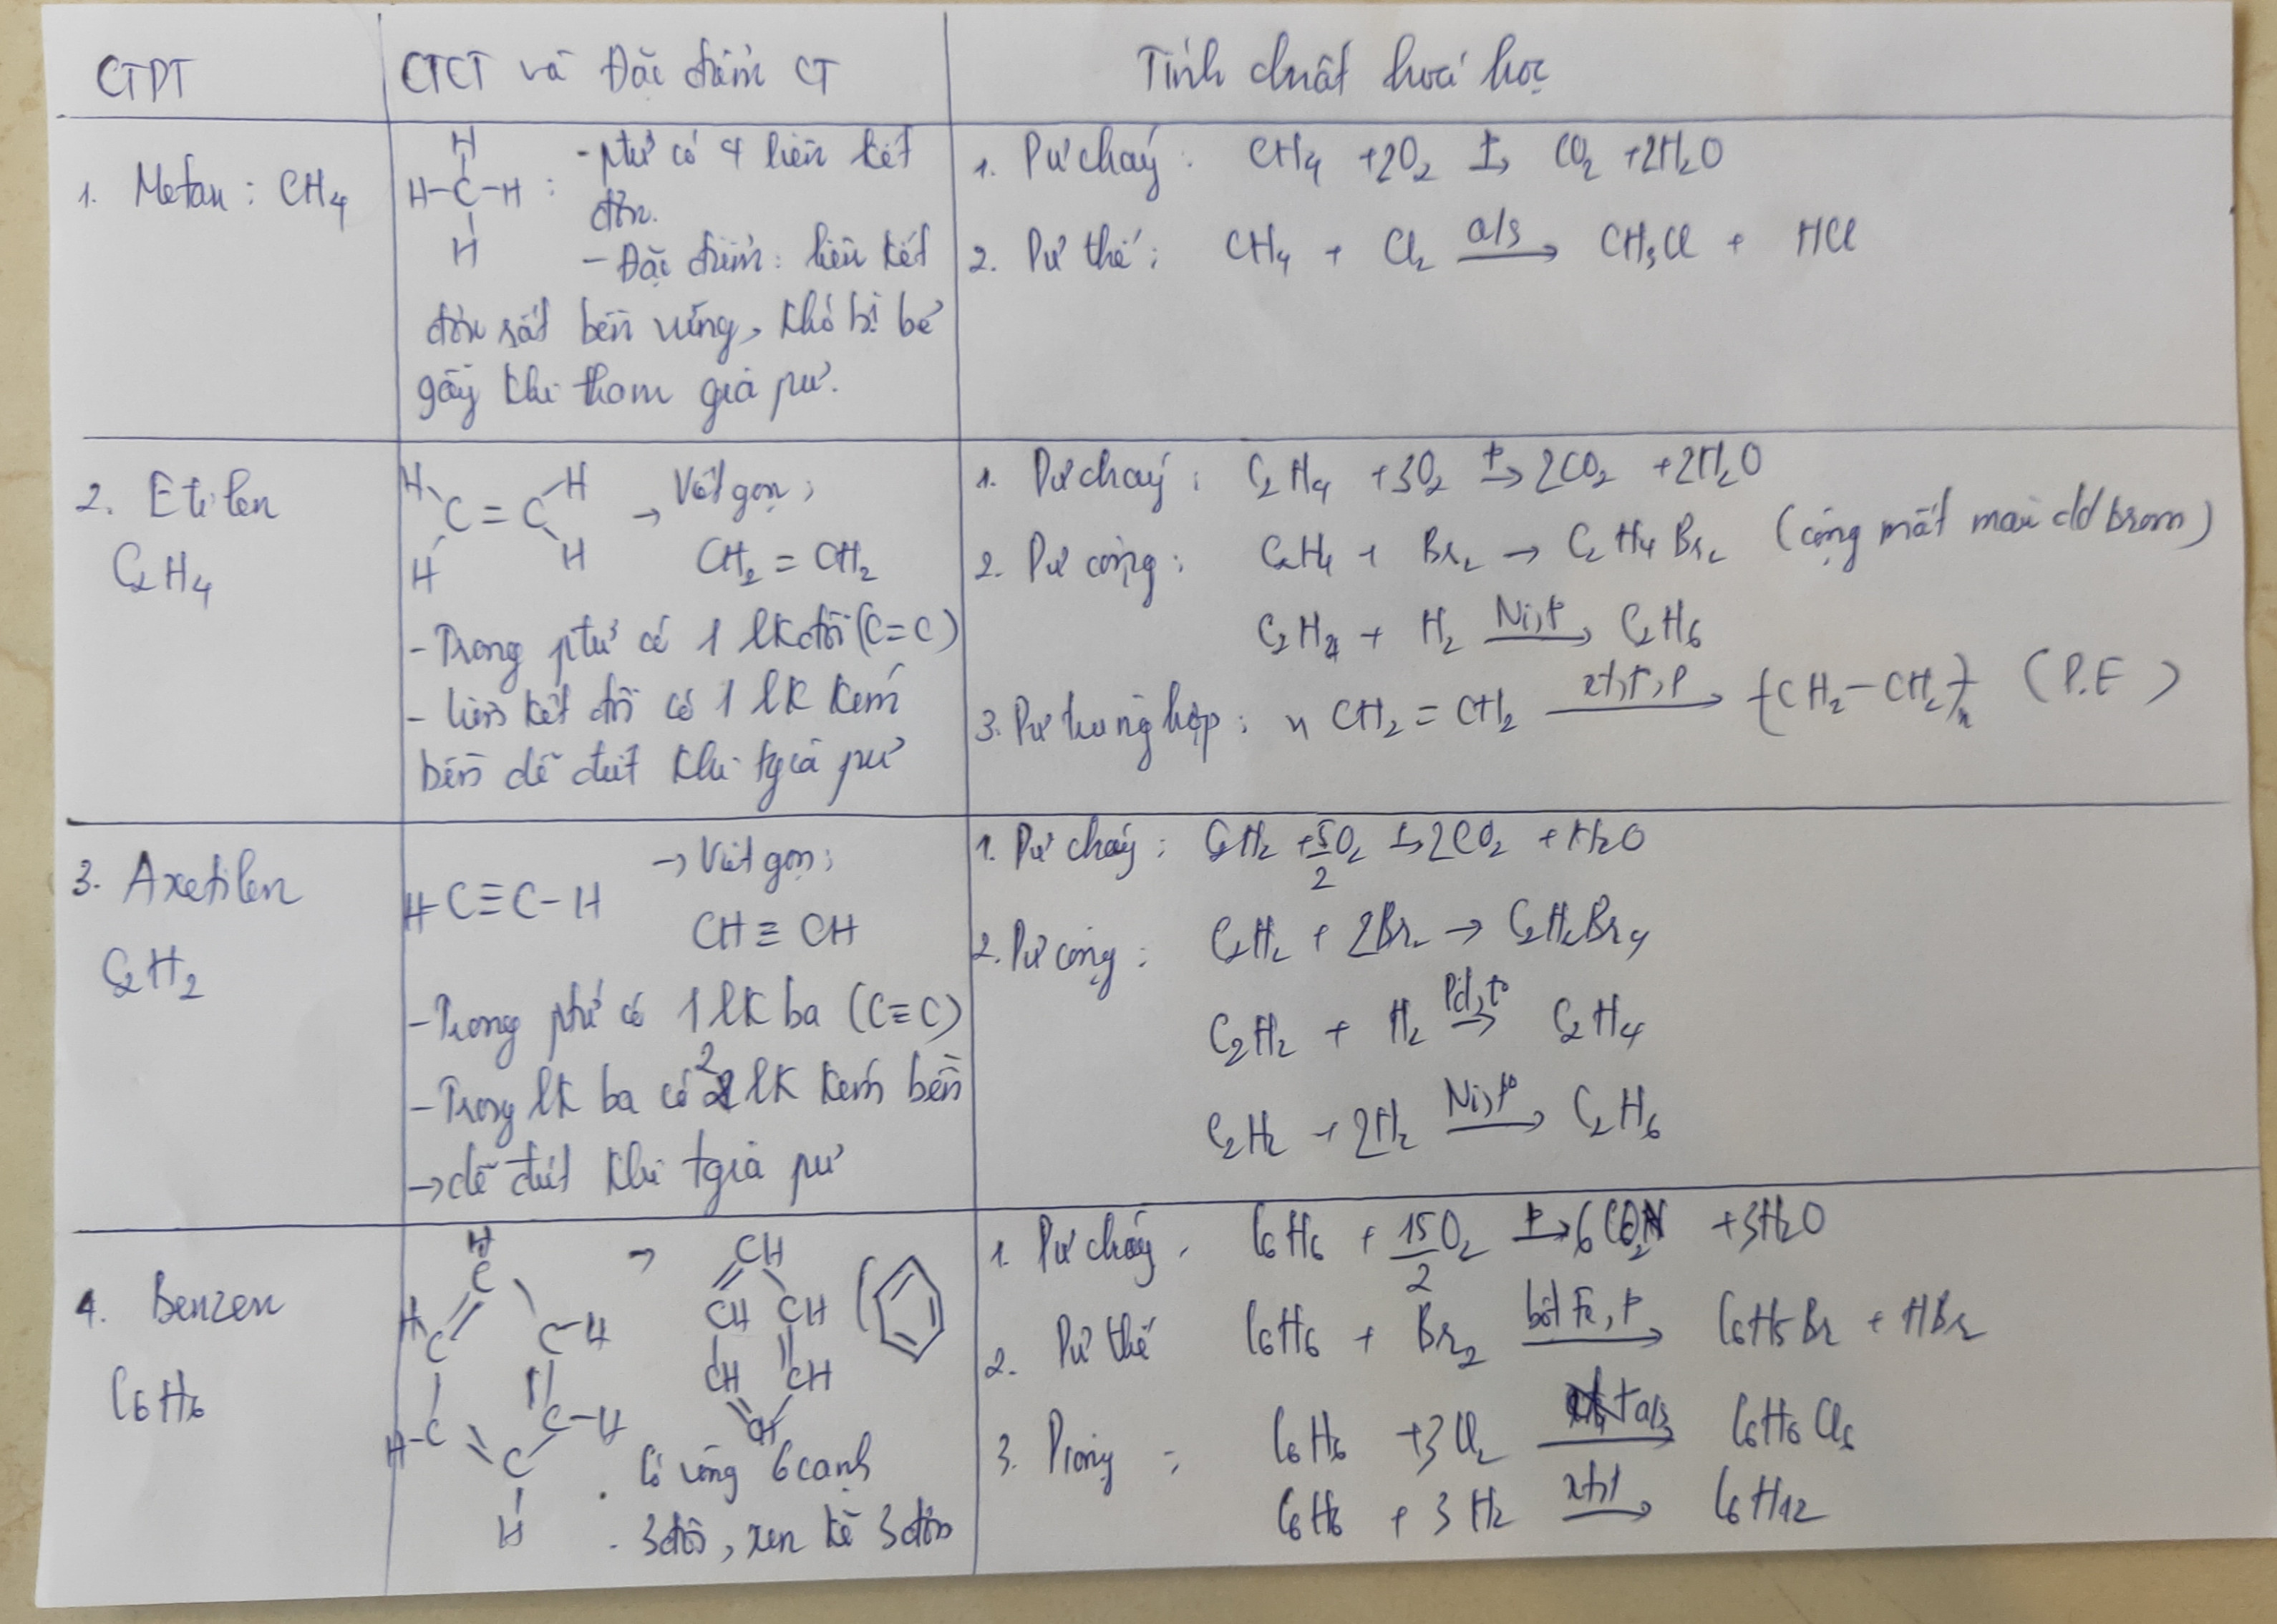 CTPT
CTCT và Đặc điểm CT
Tính chất hoá học
1. Metan : CH4
H
H-C-H :
H
- ptử có 4 liên kết
đơn.
- Đặc điểm: liên kết
đơn rất bền vững, khó bị bẻ
gãy khi tham gia pư.
1. Pư cháy : CH4 +2O2 t→ CO2 +2H2O
2. Pư thế : CH4 + Cl2 a/s→ CH3Cl + HCl
2. Etilen
C2H4
H H
C = C → Viết gọn :
H H
CH2 = CH2
- Trong ptử có 1 lk đôi (C=C)
- liên kết đôi có 1 lk kém
bền dễ đứt khi tgia pư
1. Pư cháy : C2H4 +3O2 t→ 2CO2 +2H2O
2. Pư cộng : C2H4 + Br2 → C2H4Br2 (cộng mất màu dd brom)
C2H4 + H2 Ni,t→ C2H6
3. Pư trùng hợp : n CH2 = CH2 xt,t,p→ (CH2-CH2)n (P.E)
3. Axetilen
C2H2
H-C≡C-H
→ Viết gọn :
CH ≡ CH
- Trong ptử có 1 lk ba (C≡C)
- Trong lk ba có 2 lk kém bền
→ dễ đứt khi tgia pư
1. Pư cháy : C2H2 +5/2O2 t→ 2CO2 +H2O
2. Pư cộng : C2H2 + 2Br2 → C2H2Br4
C2H2 + H2 Pd,t°→ C2H4
C2H2 + 2H2 Ni,t°→ C2H6
4. Benzen
C6H6
H
C
H
C C-H
H-C C-H
C
H
→
CH
CH CH
CH CH
CH
. Có vòng 6 cạnh
. 3 đôi, xen kẽ 3 đơn
1. Pư cháy . C6H6 + 15/2O2 t→ 6CO2 +3H2O
2. Pư thế C6H6 + Br2 bột Fe, t→ C6H5Br + HBr
3. Pcộng : C6H6 +3Cl2 a/s→ C6H6Cl6
C6H6 + 3H2 xt,t→ C6H12